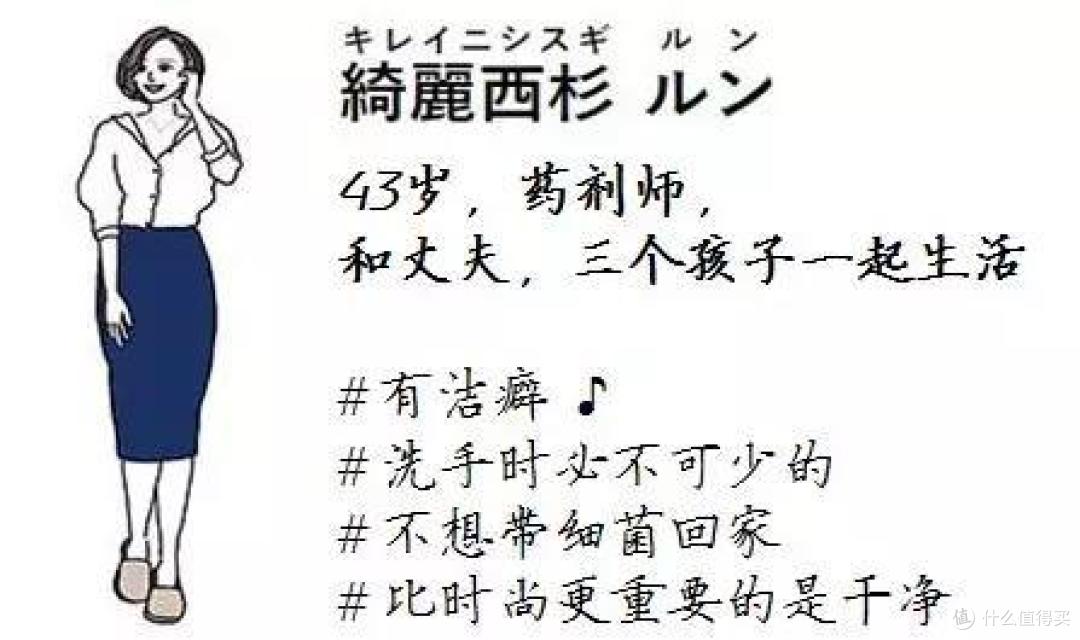 キレイニシスギ ルン
綺麗西杉 ルン
43岁，药剂师，
和丈夫，三个孩子一起生活
#有洁癖♪
#洗手时必不可少的
#不想带细菌回家
#比时尚更重要的是干净
值 什么值得买